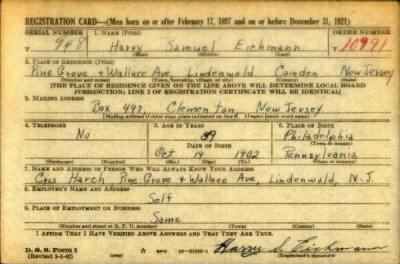 REGISTRATION CARD—(Men born on or after February 17, 1897 and on or before December 31, 1921)
SERIAL NUMBER 1. NAME (Print) ORDER NUMBER
T 948 Harry Samuel Eichmann T 10991
(First) (Middle) (Last)
2. PLACE OF RESIDENCE (Print)
Pine Grove & Wallace Ave. Lindenwold Camden New Jersey
(Number and street) (Town, township, village, or city) (County) (State)
[THE PLACE OF RESIDENCE GIVEN ON THE LINE ABOVE WILL DETERMINE LOCAL BOARD
JURISDICTION; LINE 2 OF REGISTRATION CERTIFICATE WILL BE IDENTICAL]
3. MAILING ADDRESS
Box 497, Clementon, New Jersey
4. TELEPHONE 5. AGE IN YEARS 6. PLACE OF BIRTH
No 39 Philadelphia
DATE OF BIRTH (Town or county)
Oct 19 1902 Pennsylvania
(Exchange) (Number) (Mo.) (Day) (Yr.) (State or country)
7. NAME AND ADDRESS OF PERSON WHO WILL ALWAYS KNOW YOUR ADDRESS
Harch Pine Grove & Wallace Ave, Lindenwold, N. J.
8. EMPLOYER'S NAME AND ADDRESS
Self
9. PLACE OF EMPLOYMENT OR BUSINESS
Same
(Number and street or R. F. D. number) (Town) (County) (State)
I AFFIRM THAT I HAVE VERIFIED ABOVE ANSWERS AND THAT THEY ARE TRUE.
D. S. S. Form 1 Harry S. Eichmann
(Revised 1-1-42) (Registrant's signature)